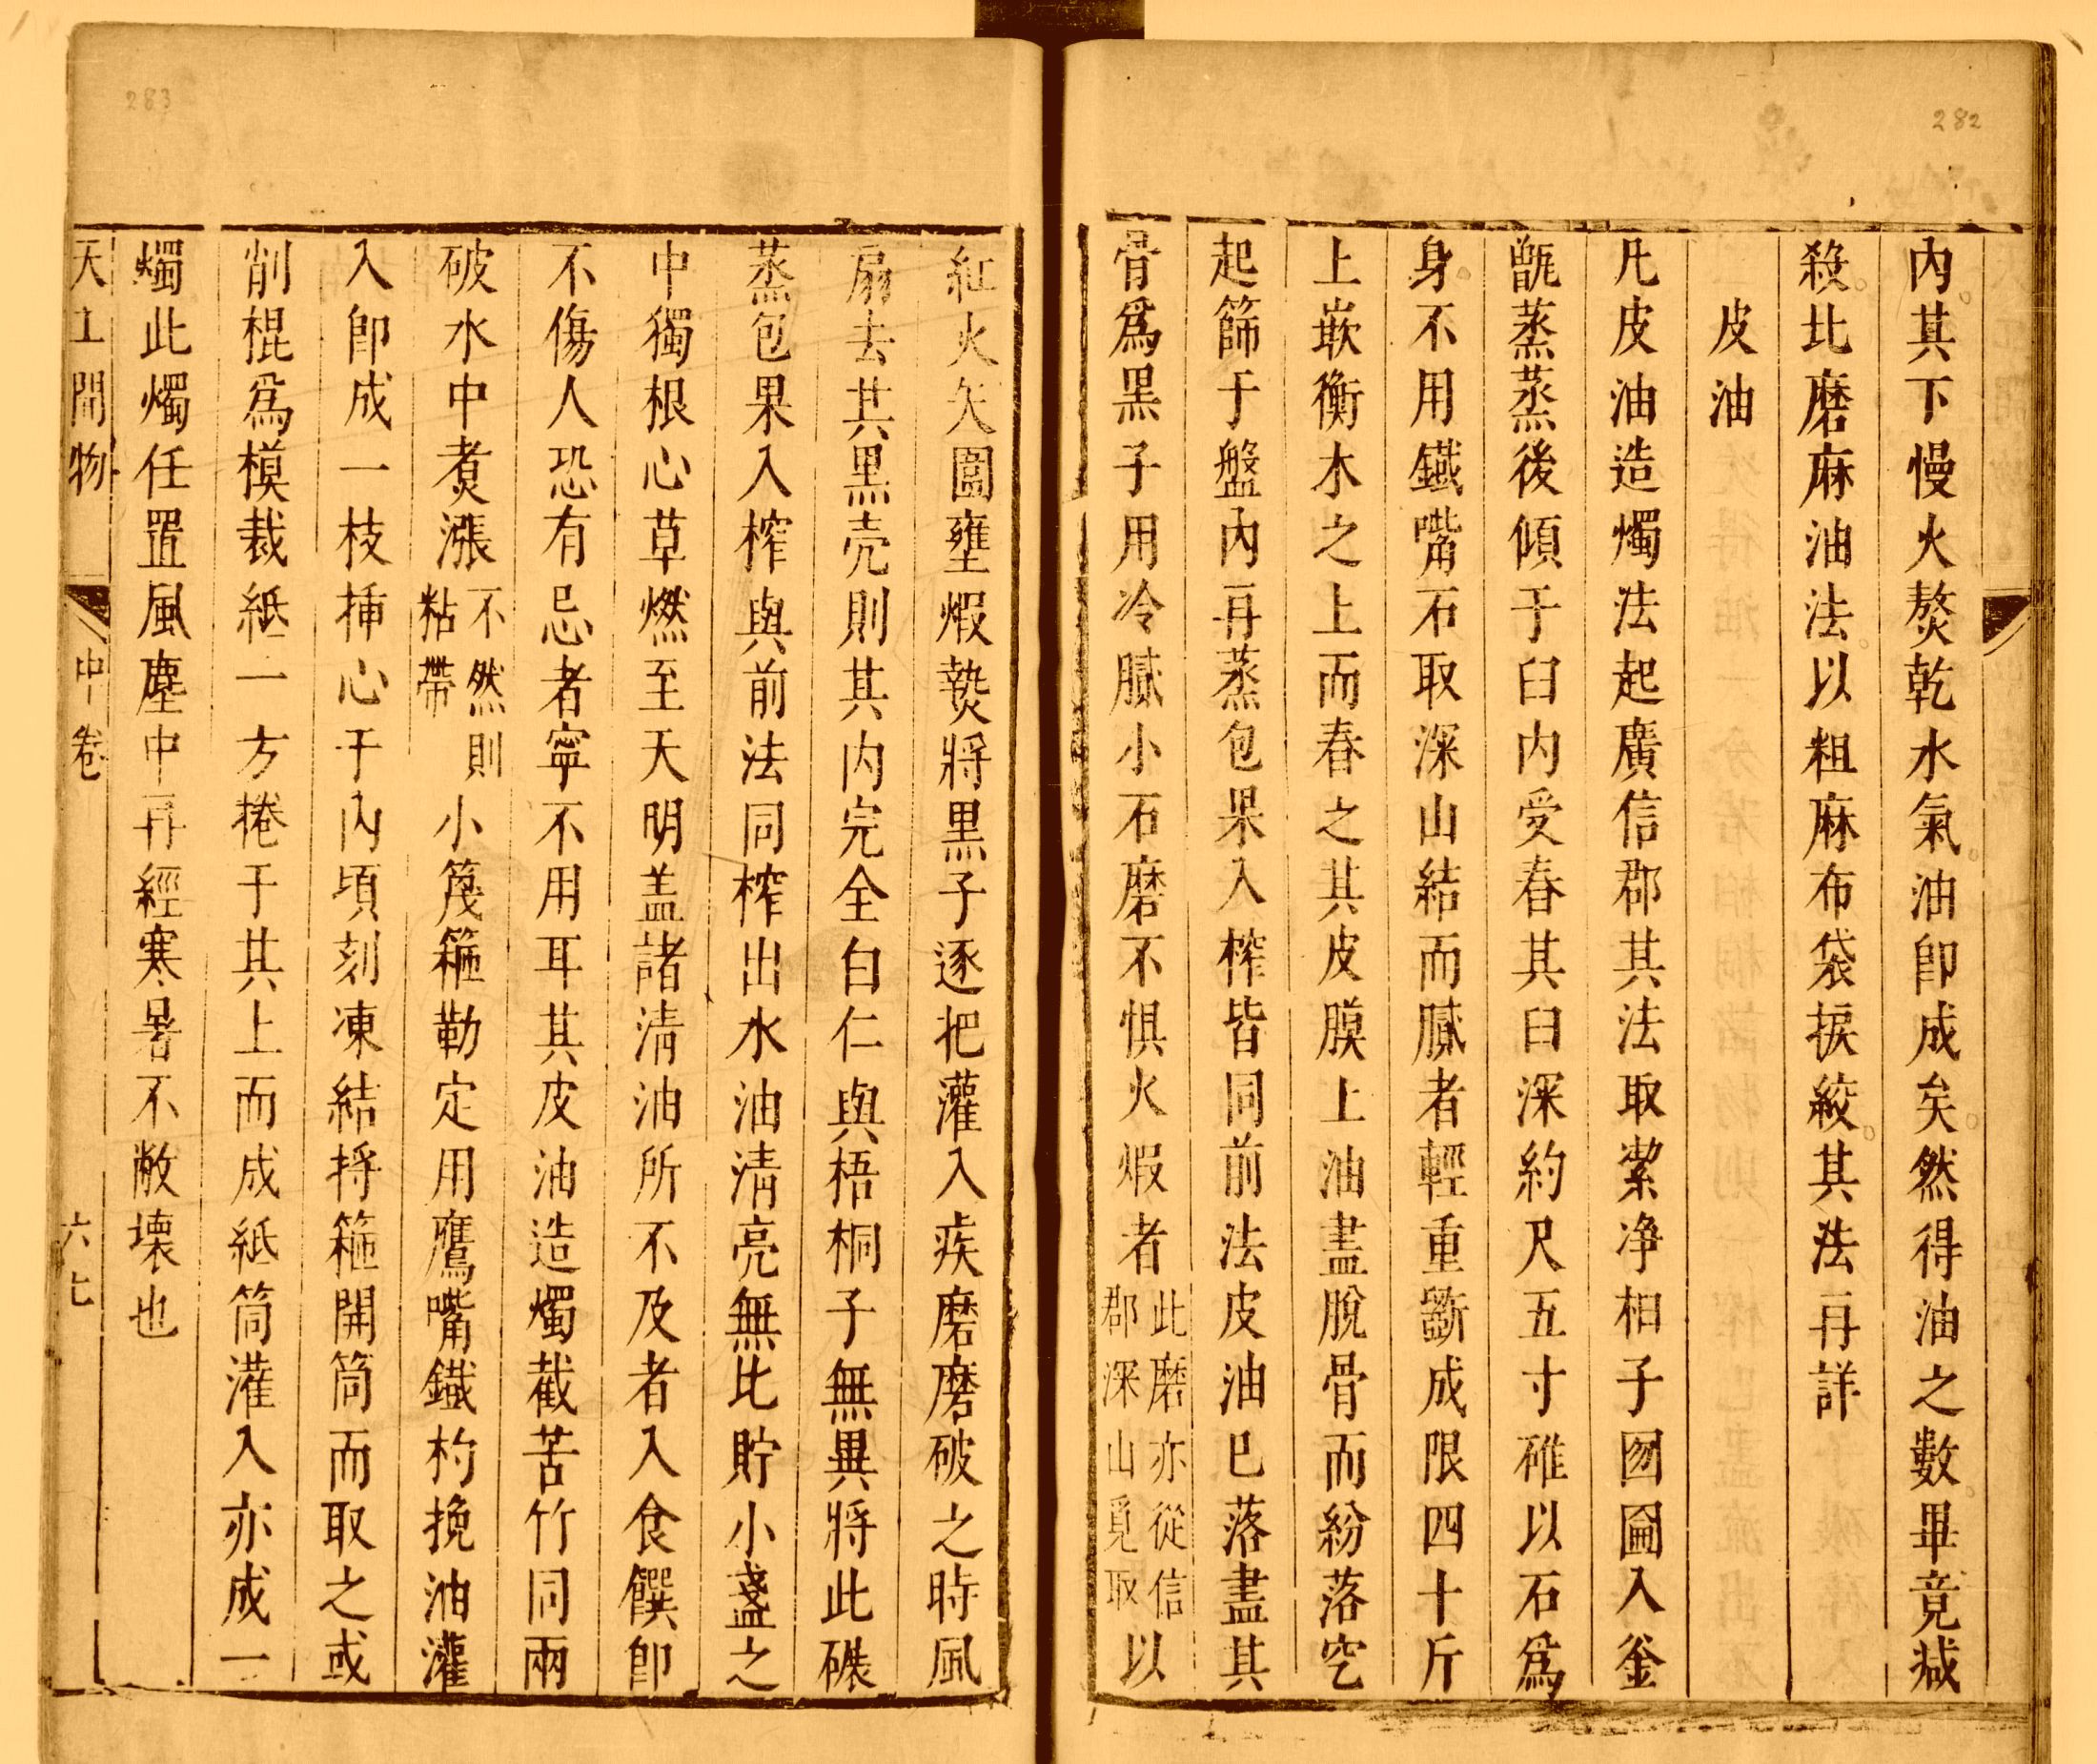 282
內其下慢火熬乾水氣油卽成矣然得油之數畢竟減
殺北磨麻油法以粗麻布袋捩絞其法再詳
皮油
凡皮油造燭法起廣信郡其法取潔净桕子囫圇入釜
甑蒸蒸後傾于臼內受舂其臼深約尺五寸碓以石爲
身不用鐵嘴石取深山結而膩者輕重斵成限四十斤
上嵌衡木之上而舂之其皮膜上油盡脫骨而紛落空
起篩于盤內再蒸包果入榨皆同前法皮油已落盡其
骨爲黑子用冷膩小石磨不惧火煆者此磨亦從信郡深山覓取以
283
紅火矢圍壅煆𤍠將黑子逐把灌入疾磨磨破之時風
扇去其黑壳則其內完全白仁與梧桐子無異將此碾
蒸包果入榨與前法同榨出水油淸亮無比貯小盞之
中獨根心草燃至天明盖諸淸油所不及者入食饌卽
不傷人恐有忌者寧不用耳其皮油造燭截苦竹同兩
破水中煮漲不然則粘帶小篾箍勒定用鷹嘴鐵杓挽油灌
入卽成一枝揷心于內頃刻凍結捋箍開筒而取之或
削棍爲模裁紙一方捲于其上而成紙筒灌入亦成一
燭此燭任置風塵中再經寒暑不敝壞也
天工開物 中卷 六七